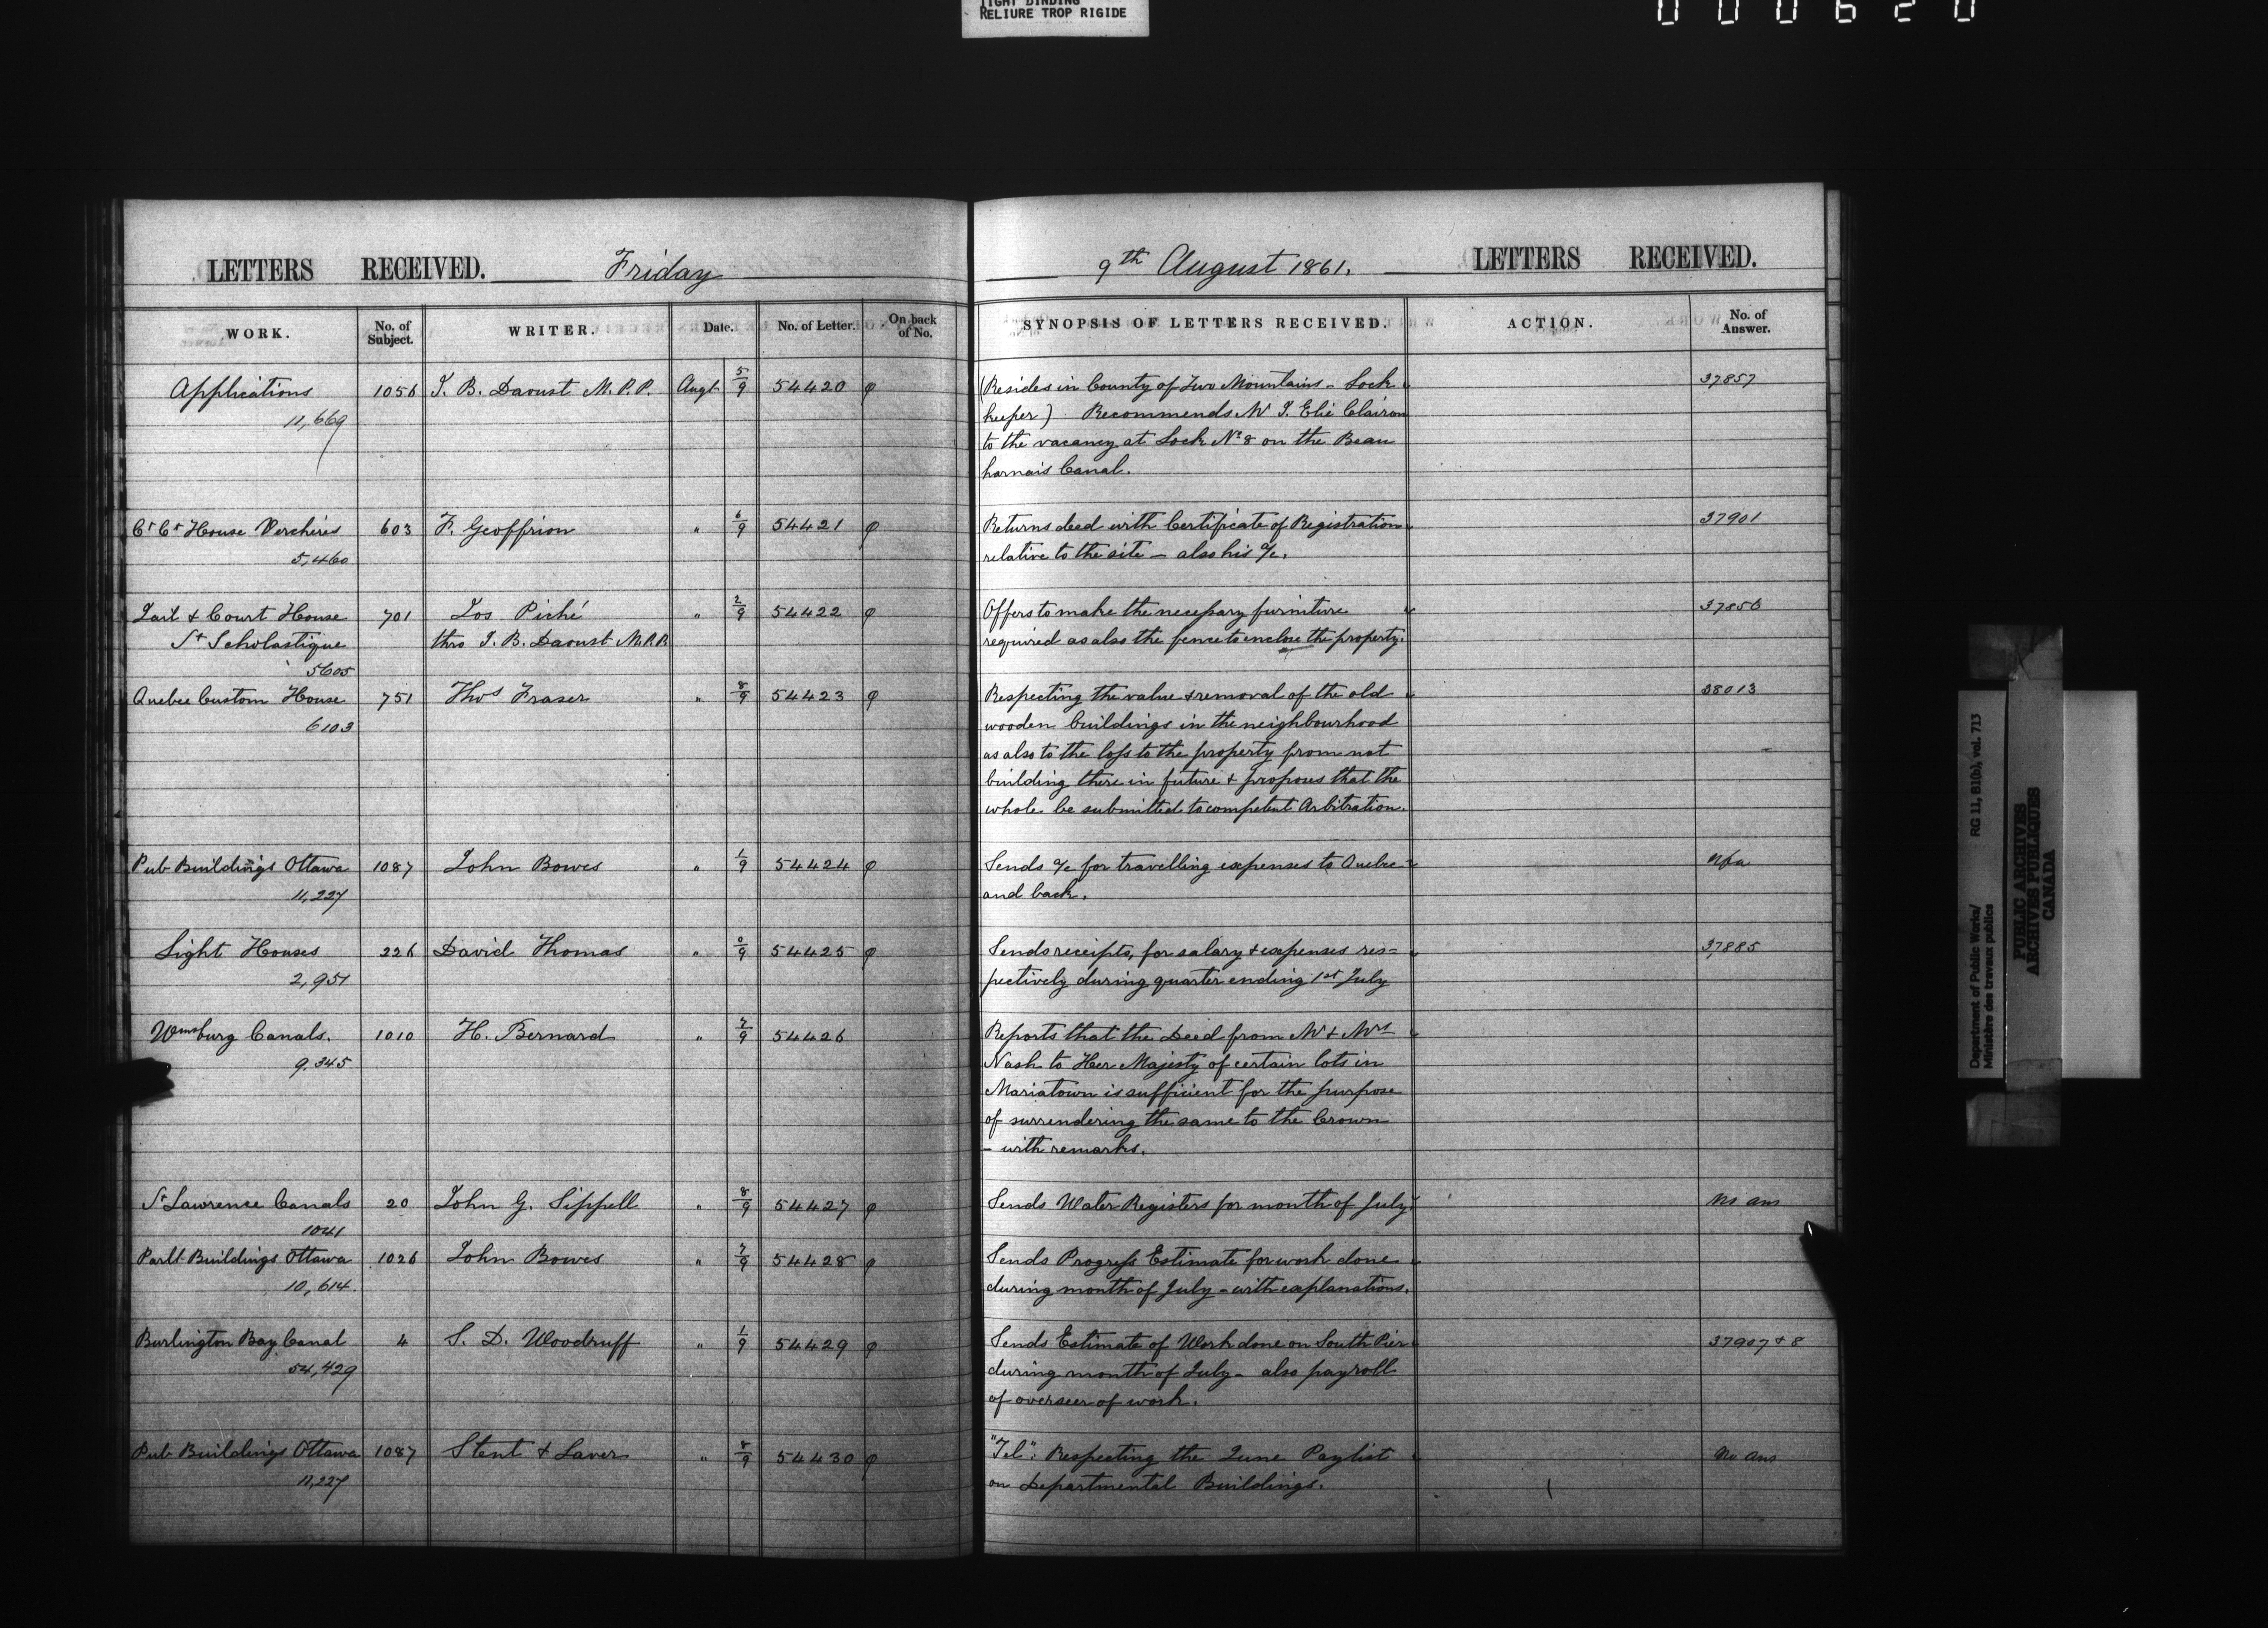 TIGHT BINDING
RELIURE TROP RIGIDE
000620
LETTERS RECEIVED. Friday
9th August 1861. LETTERS RECEIVED.
WORK. No. of Subject. WRITER. Date. No. of Letter. On back of No. SYNOPSIS OF LETTERS RECEIVED. ACTION. No. of Answer.
Applications 1056 J. B. Daoust M.P.P. Augt 5/9 54420 φ (Resides in County of Two Mountains - Lock 37857
11,669 keeper) Recommends Mr J. Elie
to the vacancy at Lock No 8 on the Beau
harnois Canal.
Ct Ct House Verchères 603 F. Geoffrion " 6/9 54421 φ Returns deed with Certificate of Registration 37901
5,460 relative to the site - also his a/c.
Jail & Court House 701 Jos Piché " 2/9 54422 φ Offers to make the necessary furniture 37856
St Scholastique thro J. B. Daoust M.P.P. required as also the fence to enclose the property.
5605
Quebec Custom House 751 Thos Fraser " 8/9 54423 φ Respecting the value & removal of the old 38013
6103 wooden buildings in the neighbourhood
as also to the loss to the property from not
building there in future & proposes that the
whole be submitted to competent Arbitration.
Pub Buildings Ottawa 1087 John Bowes " 1/9 54424 φ Sends a/c for travelling expenses to Quebec
11,227 and back.
Light Houses 226 David Thomas " 54425 φ Sends receipts, for salary & expenses res= 37,885
2,951 pectively during quarter ending 1st July
Wmsburg Canals. 1010 H. Bernard " 7/9 54426 Reports that the Deed from Mr & Mrs
9,345 Nash to Her Majesty of certain lots in
Mariatown is sufficient for the purpose
of surrendering the same to the Crown
- with remarks.
St Lawrence Canals 20 John G. Sippell " 8/9 54427 φ Sends Water Registers for month of July No ans
1041
Parlt Buildings Ottawa 1026 John Bowes " 7/9 54428 φ Sends Progress Estimate for work done
10,614. during month of July - with explanations.
Burlington Bay Canal 4 S. D. Woodruff " 1/9 54429 φ Sends Estimate of Work done on South Pier 37907 & 8
54,429 during month of July - also payroll
of overseer of work.
Pub Buildings Ottawa 1087 Stent & Laver " 8/9 54430 φ "Tel": Respecting the June Paylist No ans
11,227 on Departmental Buildings.
Department of Public Works/ RG 11, B1(a), vol. 713
Ministère des travaux publics
PUBLIC ARCHIVES
ARCHIVES PUBLIQUES
CANADA